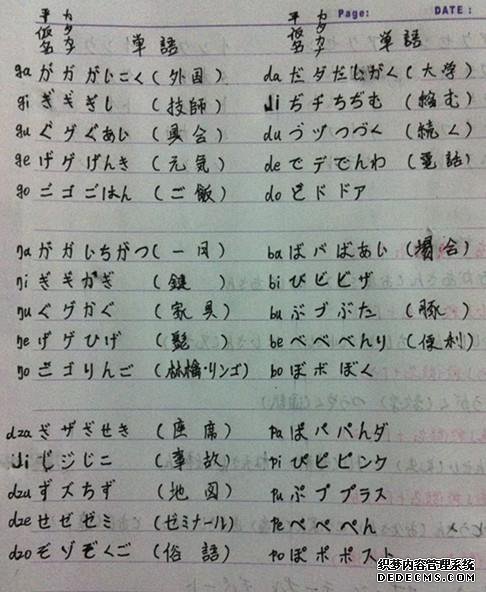 平仮名 カタカナ 単語 平仮名 カタカナ 単語
Page: DATE:
ga が ガ がいこく(外国) da だ ダ だいがく(大学)
gi ぎ ギ ぎし (技師) ji ぢ ヂ ちぢむ (縮む)
gu ぐ グ ぐあい (具合) du づ ヅ つづく (続く)
ge げ ゲ げんき (元気) de で デ でんわ (電話)
go ご ゴ ごはん (ご飯) do ど ド ドア
ŋa が ガ いちがつ(一月) ba ば バ ばあい(場合)
ŋi ぎ ギ かぎ (鍵) bi び ビ ビザ
ŋu ぐ グ かぐ (家具) bu ぶ ブ ぶた (豚)
ŋe げ ゲ ひげ (髭) be べ ベ べんり (便利)
ŋo ご ゴ りんご (林檎・リンゴ) bo ぼ ボ ぼく
dza ざ ザ ざせき (座席) pa ぱ パ パんダ
ji じ ジ じこ (事故) pi ぴ ピ ピンク
dzu ず ズ ちず (地図) pu ぷ プ プラス
dze ぜ ゼ ゼミ (ゼミナール) pe ぺ ペ ぺん
dzo ぞ ゾ ぞくご (俗語) po ぽ ポ ポスト
织梦内容管理系统
DEDECMS.COM